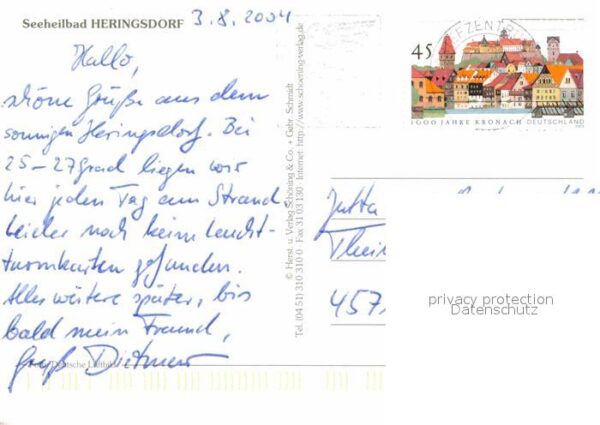 Seeheilbad HERINGSDORF 3.8.2004
Hallo,
schöne Grüße aus dem
sonnigen Heringsdorf. Bei
25-27 Grad liegen wir
hier jeden Tag am Strand
leider noch keine Leucht-
turmkarten gefunden.
Alles weitere später, bis
bald mein Freund,
Gruß Dietmar
Deutsche Luftbild
© Herst. u. Verlag Schöning & Co. + Gebr. Schmidt
Tel. (04 51) 310 310 0 Fax 31 03 130 Internet: http://www.schoening-verlag.de
45
1000 JAHRE KRONACH DEUTSCHLAND
Jutta
457
privacy protection
Datenschutz